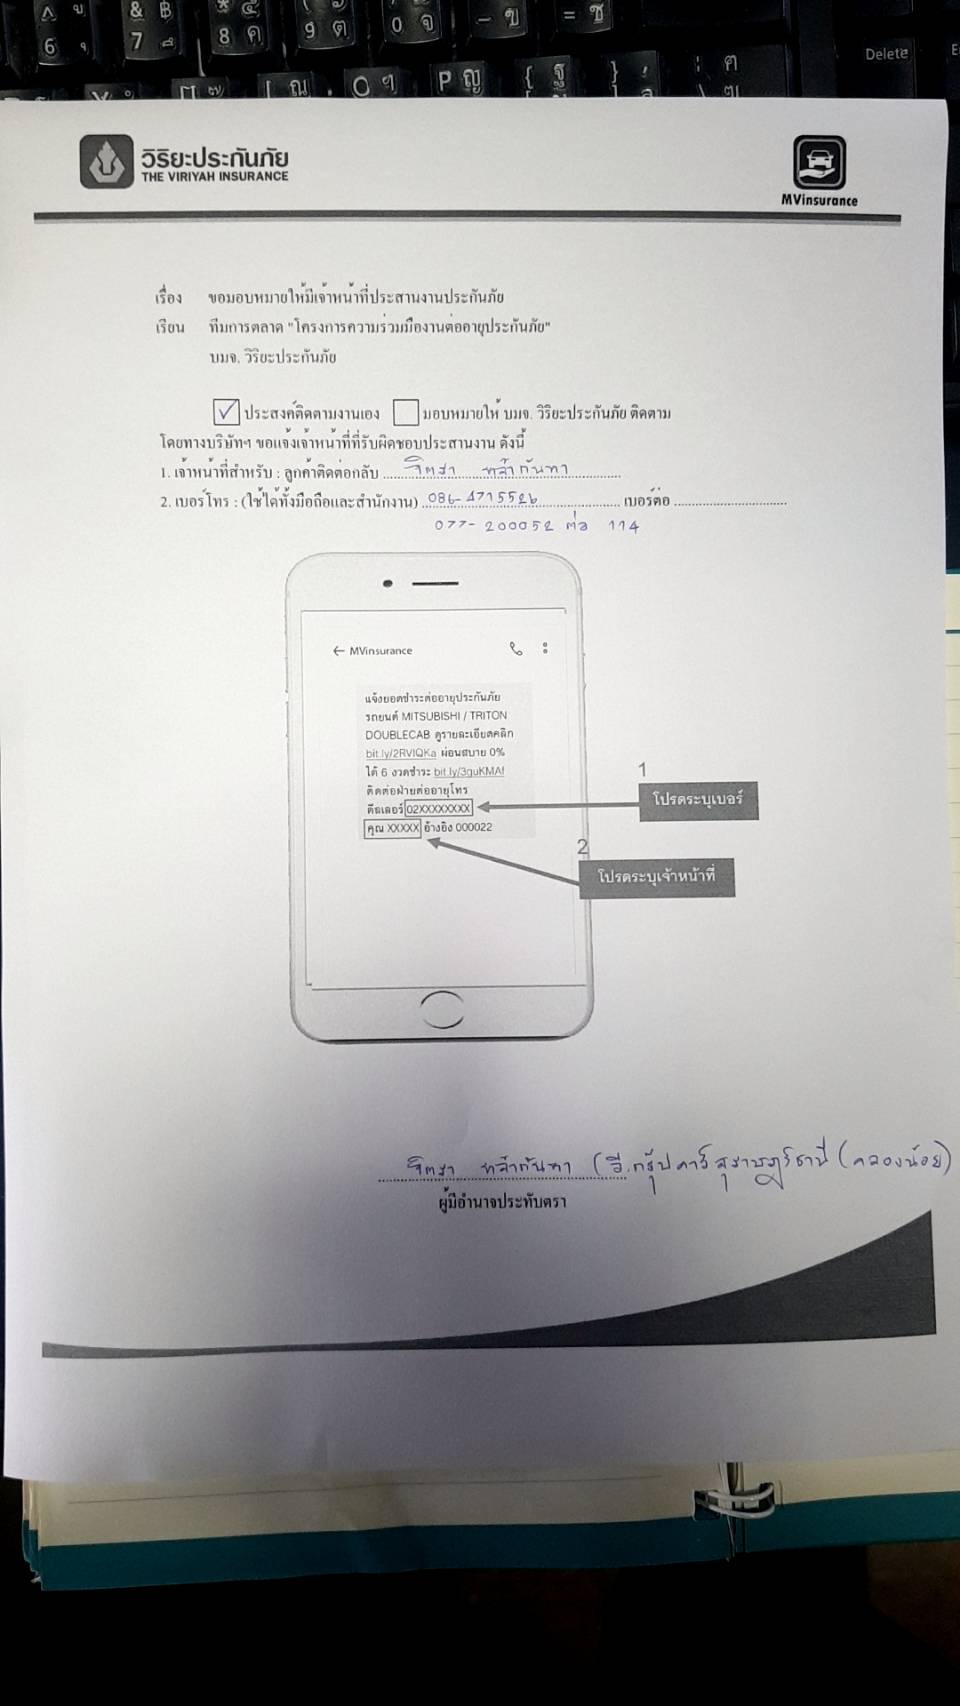 ^ ู & ฿ * ๕ ( ๖ ) ๗ _ ๘ + ๙
6 ุ 7 ึ 8 ค 9 ต 0 จ - ข = ช
Delete
O ฯ P ญ { ฐ } ,
วิริยะประกันภัย
THE VIRIYAH INSURANCE
MVinsurance
เรื่อง ขอมอบหมายให้มีเจ้าหน้าที่ประสานงานประกันภัย
เรียน ทีมการตลาด "โครงการความร่วมมืองานต่ออายุประกันภัย"
บมจ. วิริยะประกันภัย
✓ ประสงค์ติดตามงานเอง มอบหมายให้ บมจ. วิริยะประกันภัย ติดตาม
โดยทางบริษัทฯ ขอแจ้งเจ้าหน้าที่ที่รับผิดชอบประสานงาน ดังนี้
1. เจ้าหน้าที่สำหรับ : ลูกค้าติดต่อกลับ จิตรา หล้ากันหา
2. เบอร์โทร : (ใช้ได้ทั้งมือถือและสำนักงาน) 086-4715526 เบอร์ต่อ
077-200052 ต่อ 114
← MVinsurance
แจ้งยอดชำระต่ออายุประกันภัย
รถยนต์ MITSUBISHI / TRITON
DOUBLECAB ดูรายละเอียดคลิก
bit.ly/2RVIQKa ผ่อนสบาย 0%
ได้ 6 งวดชำระ bit.ly/3guKMAf
ติดต่อฝ่ายต่ออายุโทร
ดีลเลอร์ 02XXXXXXXX
คุณ XXXXX อ้างอิง 000022
1
โปรดระบุเบอร์
2
โปรดระบุเจ้าหน้าที่
จิตรา หล้ากันหา (วี.กรุ๊ปคาร์สุราษฎร์ธานี (คลองน้อย)
ผู้มีอำนาจประทับตรา